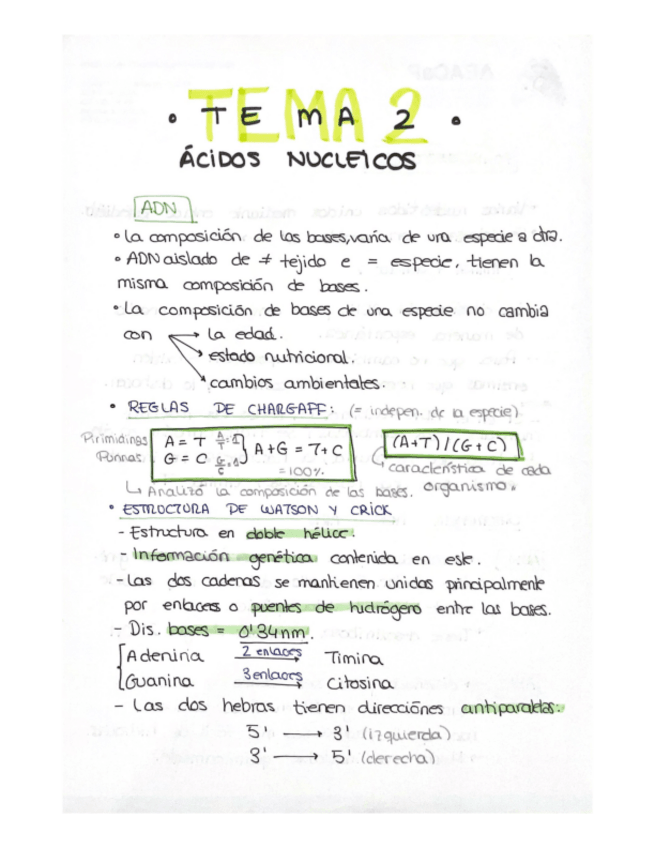 • TEMA 2 •
ÁCIDOS NUCLEICOS
ADN
• La composición de las bases, varía de una especie a otra.
• ADN aislado de ≠ tejido e = especie, tienen la
misma composición de bases.
• La composición de bases de una especie no cambia
con → la edad.
→ estado nutricional.
→ cambios ambientales.
• REGLAS DE CHARGAFF: (= indepen. de la especie)
Pirimidinas A = T A/T = 1 A+G = T+C (A+T)/(G+C)
Purinas G = C G/C = 1 = 100% característica de cada
↳ Analizó la composición de las bases. organismo.
• ESTRUCTURA DE WATSON Y CRICK
- Estructura en doble hélice.
- Información genética contenida en este.
- Las dos cadenas se mantienen unidas principalmente
por enlaces o puentes de hidrógeno entre las bases.
- Dis. bases = 0'34nm.
Adenina 2 enlaces → Timina
Guanina 3 enlaces → Citosina
- Las dos hebras tienen direcciónes antiparalelas:
5' → 3' (izquierda)
3' → 5' (derecha)